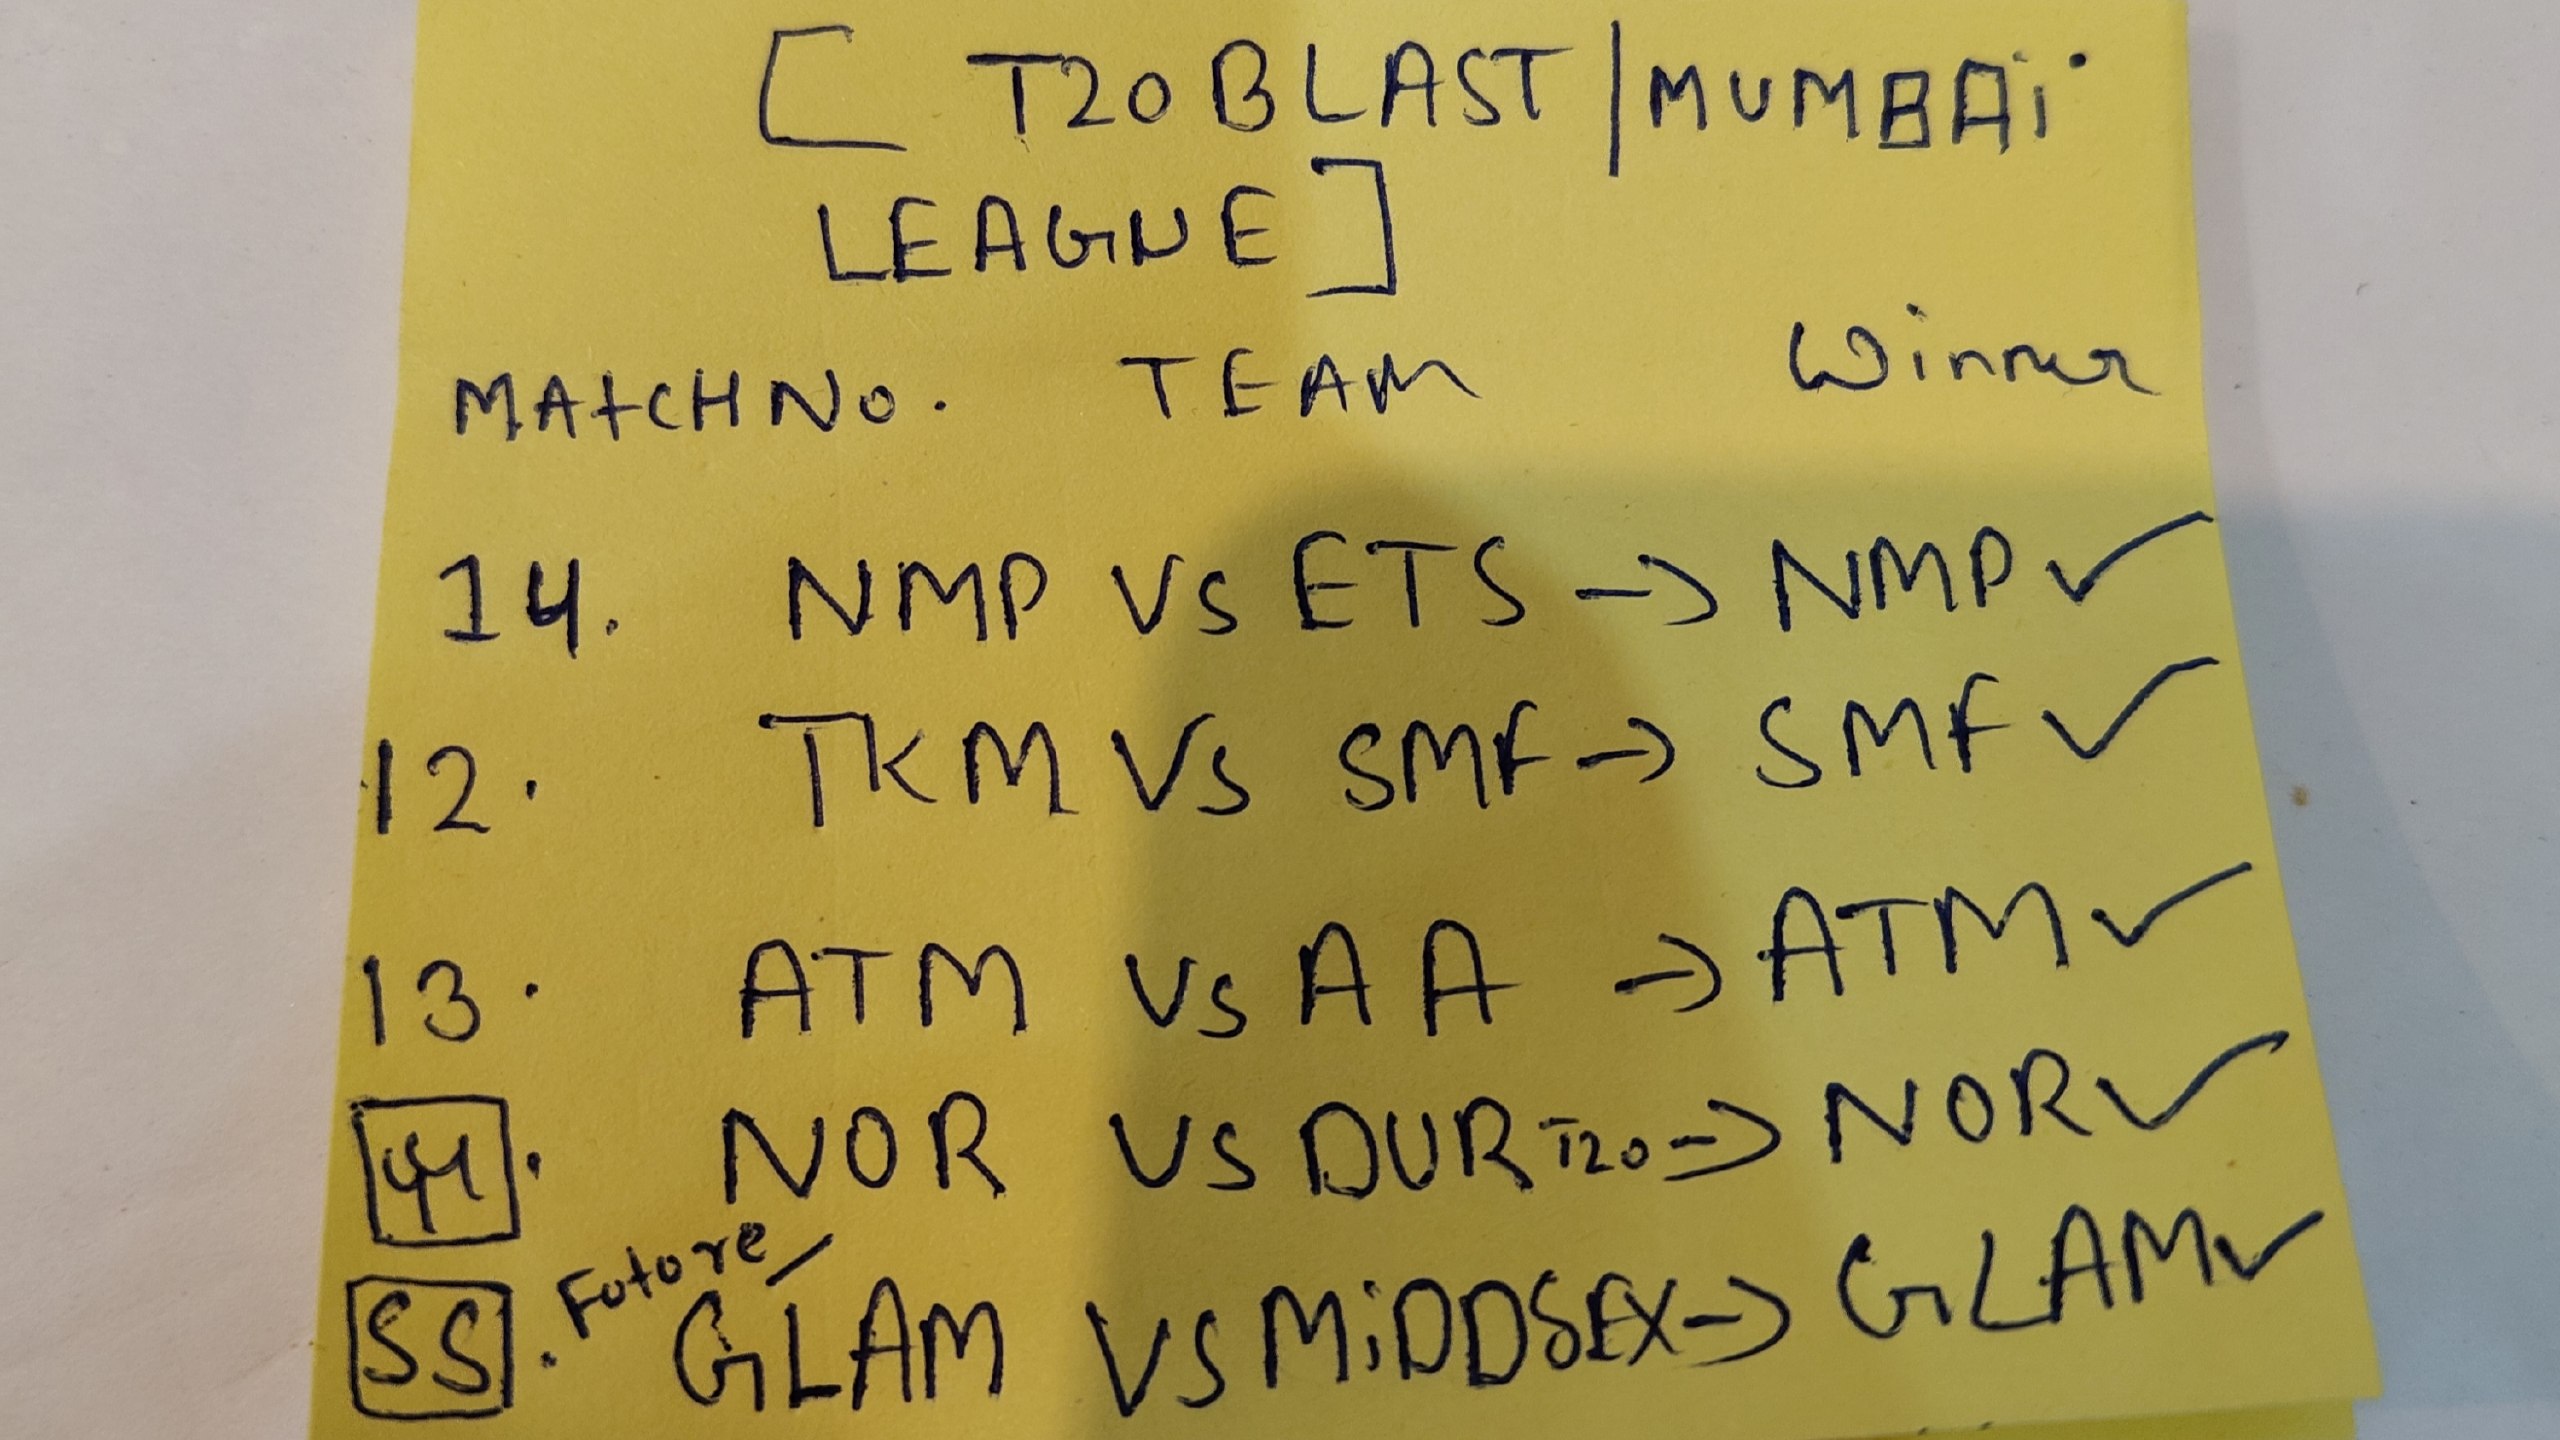 [ T20 BLAST | MUMBAi
LEAGUE ]
MAtCH No. TEAM Winner
14. NMP Vs ETS → NMP ✓
12. TKM Vs SMF → SMF ✓
13. ATM Vs AA → ATM ✓
NOR VS DUR T20 → NOR ✓
Future
SS. GLAM VS MiDDSEX → GLAM ✓